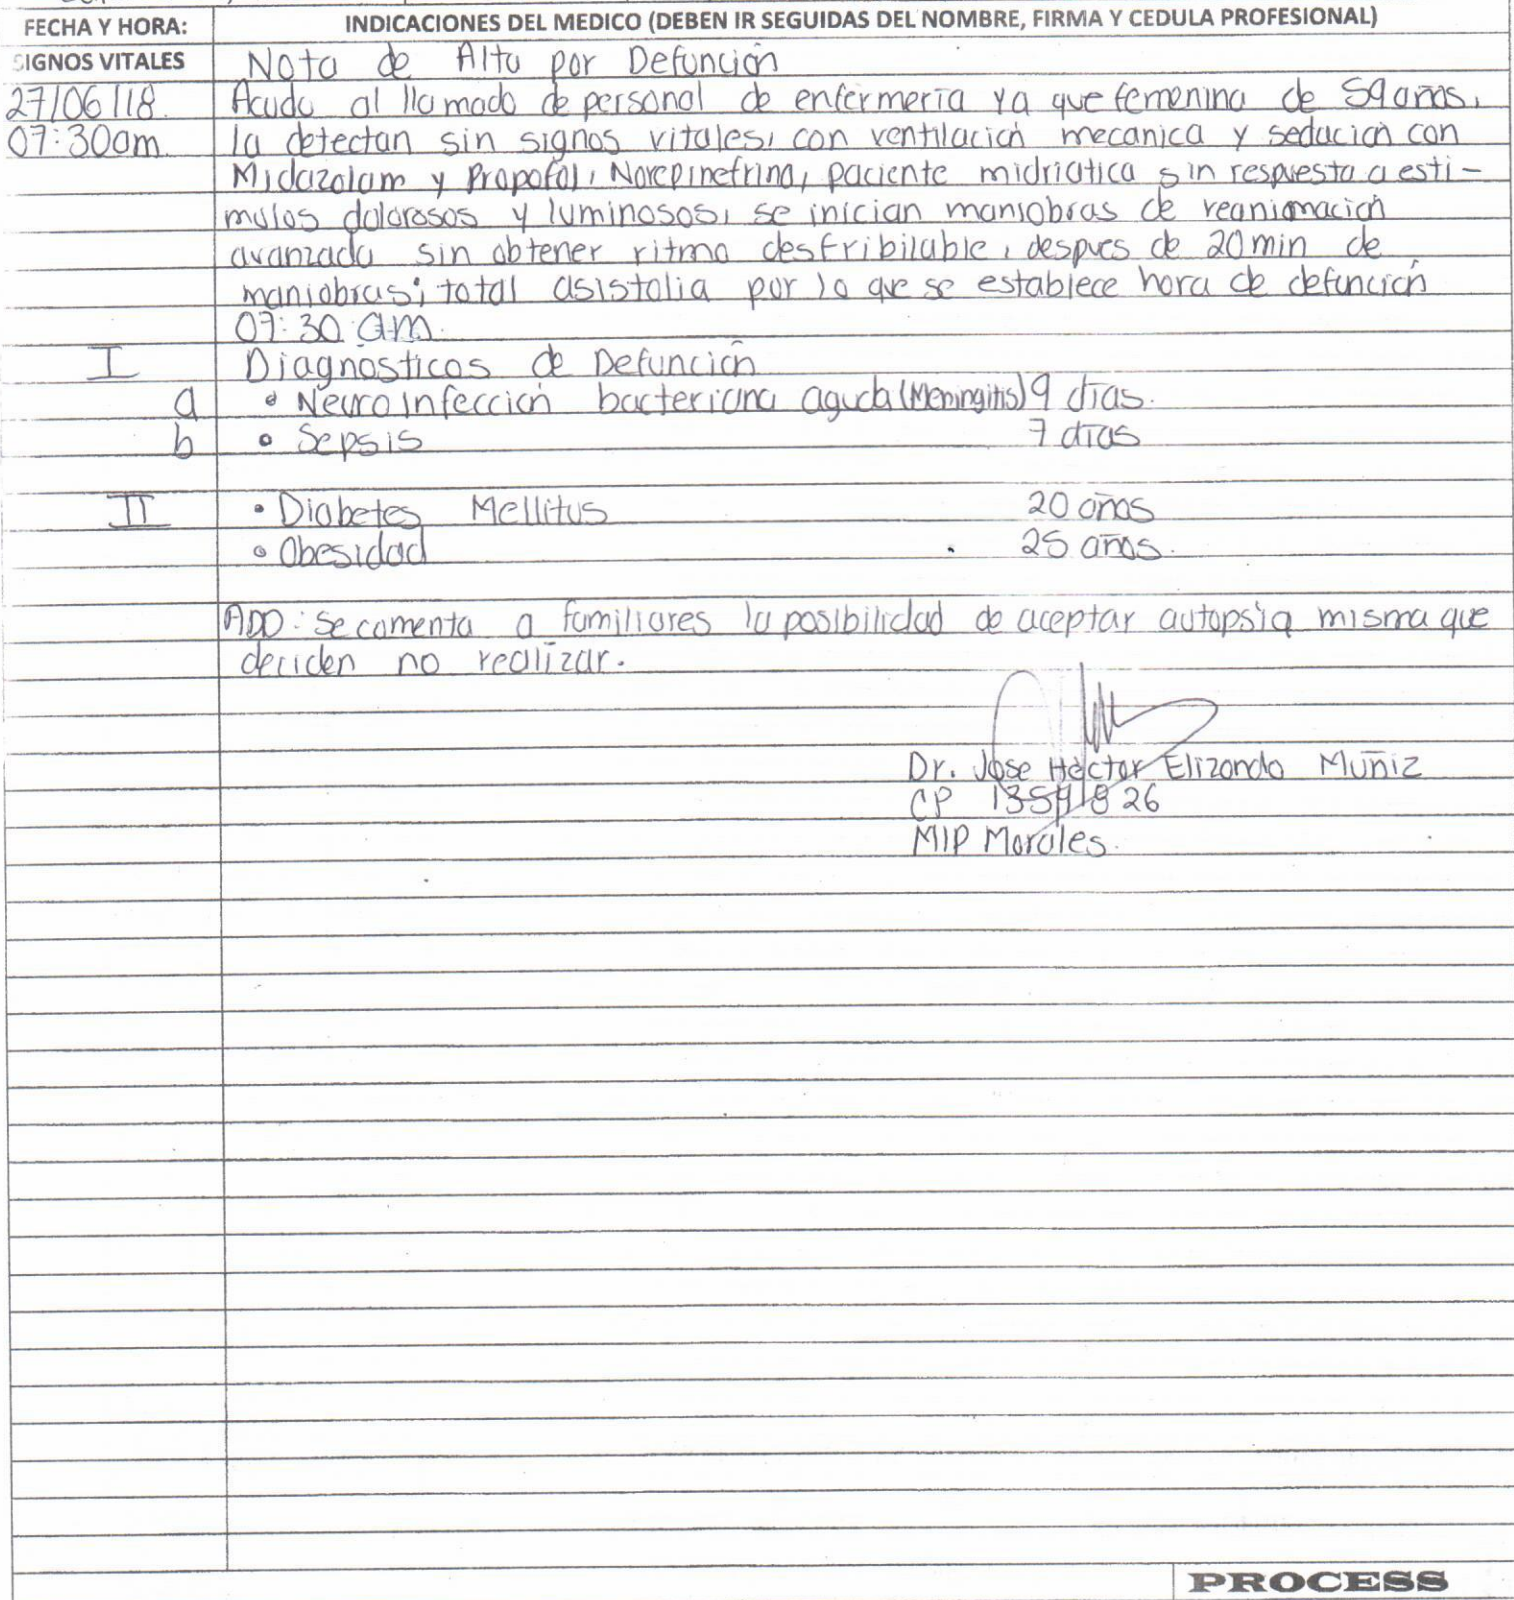 FECHA Y HORA: INDICACIONES DEL MEDICO (DEBEN IR SEGUIDAS DEL NOMBRE, FIRMA Y CEDULA PROFESIONAL)
SIGNOS VITALES Nota de Alta por Defunción
27/06/18. Acudo al llamado de personal de enfermería ya que femenina de 59 años,
07:30am. la detectan sin signos vitales, con ventilación mecanica y sedación con
Midazolam y Propofol, Norepinefrina, paciente midriatica sin respuesta a esti-
mulos dolorosos y luminosos, se inician maniobras de reanimación
avanzada sin obtener ritmo desfribilable, despues de 20 min de
maniobras; total asistolia por lo que se establece hora de defunción
07:30 am.
I Diagnosticos de Defunción
a • Neuro infección bacteriana aguda (Meningitis) 9 días.
b • Sepsis 7 días
II • Diabetes Mellitus 20 años
• Obesidad 25 años.
ADD: Se comenta a familiares la posibilidad de aceptar autopsia misma que
deciden no realizar.
Dr. Jose Hector Elizondo Muñiz
CP 826
MIP Morales.
PROCESS